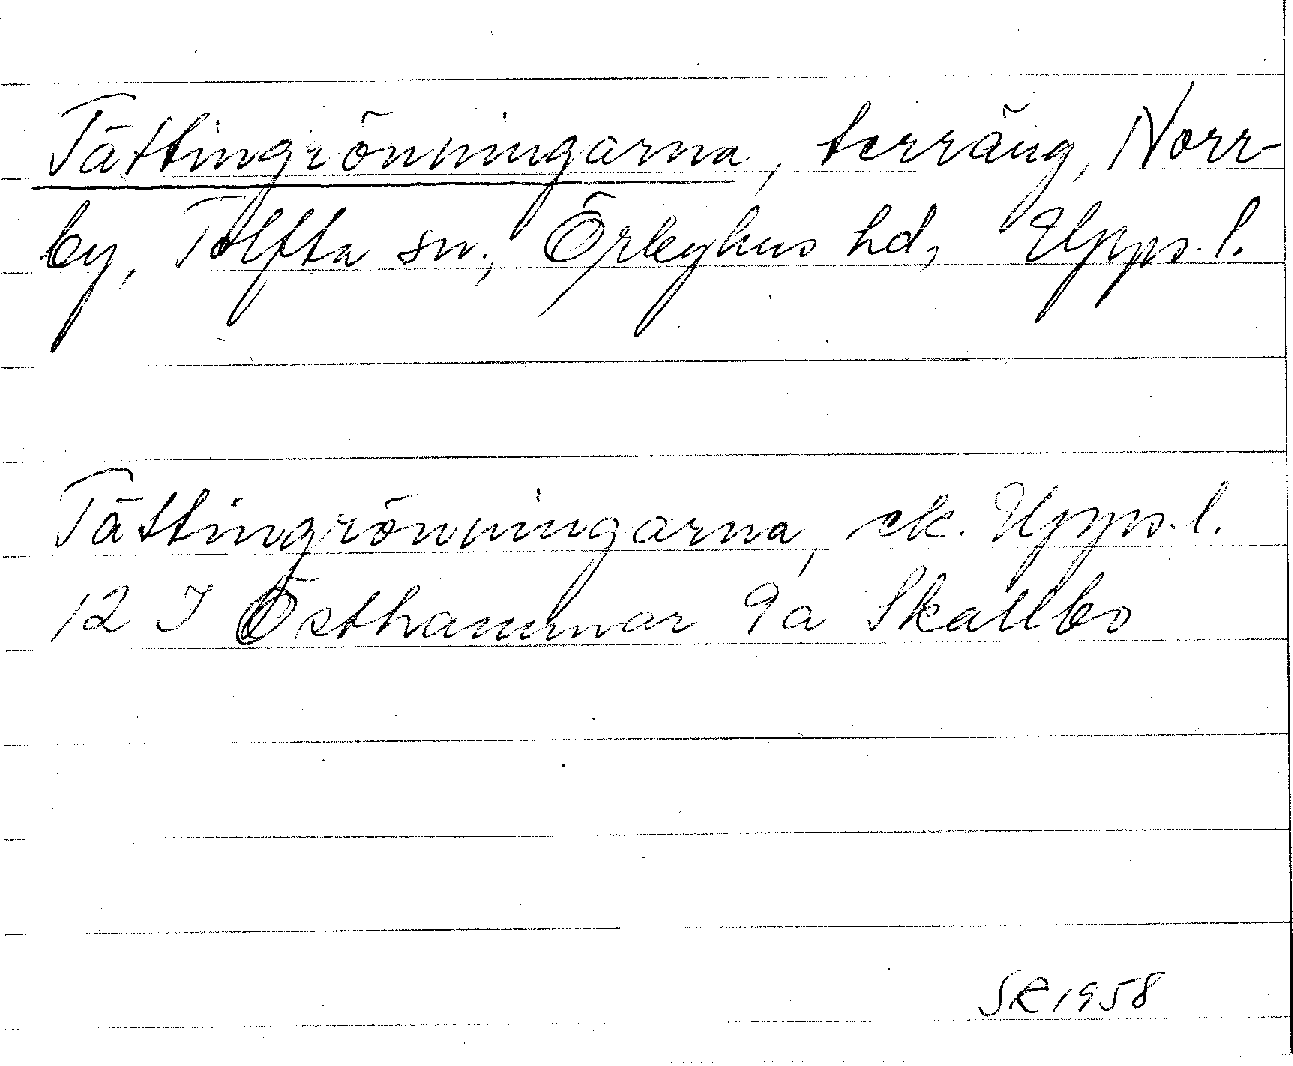 Tättingrönningarna, terräng, Norr-
by, Tolfta sn., Örbyhus hd, Upps. l.
Tättingrönningarna, ek. Upps. l.
12 I Östhammar 9a Skallbo
SR 1958